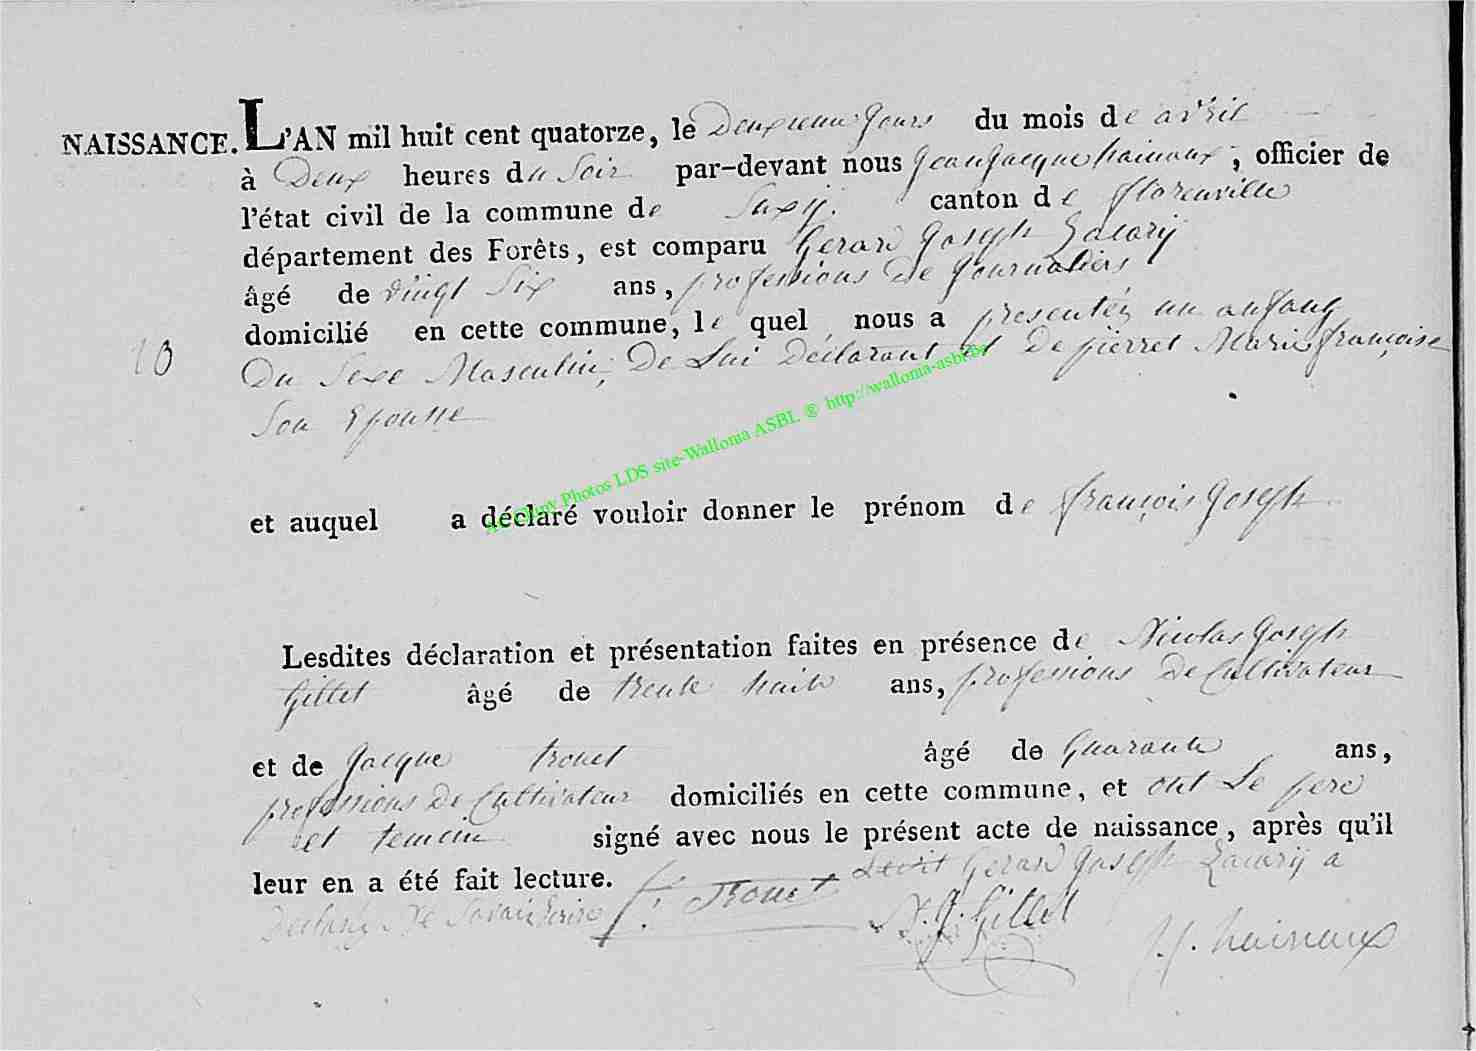 NAISSANCE. L'AN mil huit cent quatorze, le Deuxieme Jours du mois de avril
à Deux heures du Soir par-devant nous Jean Jacque hainaux, officier de
l'état civil de la commune de Suxÿ. canton de florenville
département des Forêts, est comparu Gerard Joseph Zacarij
âgé de vingt Six ans, professions De Journaliers
domicilié en cette commune, le quel nous a presentéz un anfant
10 Du Sexe Masculin, De Lui Déclarant et De pierret Marie françoise
Son Epousse
Arr Virginy Photos LDS site-Wallonia ASBL @ http://wallonia-asbl.be
et auquel a déclaré vouloir donner le prénom de françois Joseph
Lesdites déclaration et présentation faites en présence de Nicolas Joseph
Gillet âgé de trente huit ans, professions De Cultivateur
et de Jacque trouet âgé de Quarante ans,
professions De Cultivateur domiciliés en cette commune, et ont Le pere
et temoin signé avec nous le présent acte de naissance, après qu'il
leur en a été fait lecture. Ledit Gerard Joseph Zacarij a
Declaré Ne Savoir Ecrire J. Trouet N. J. Gillet
J. J. hainaux